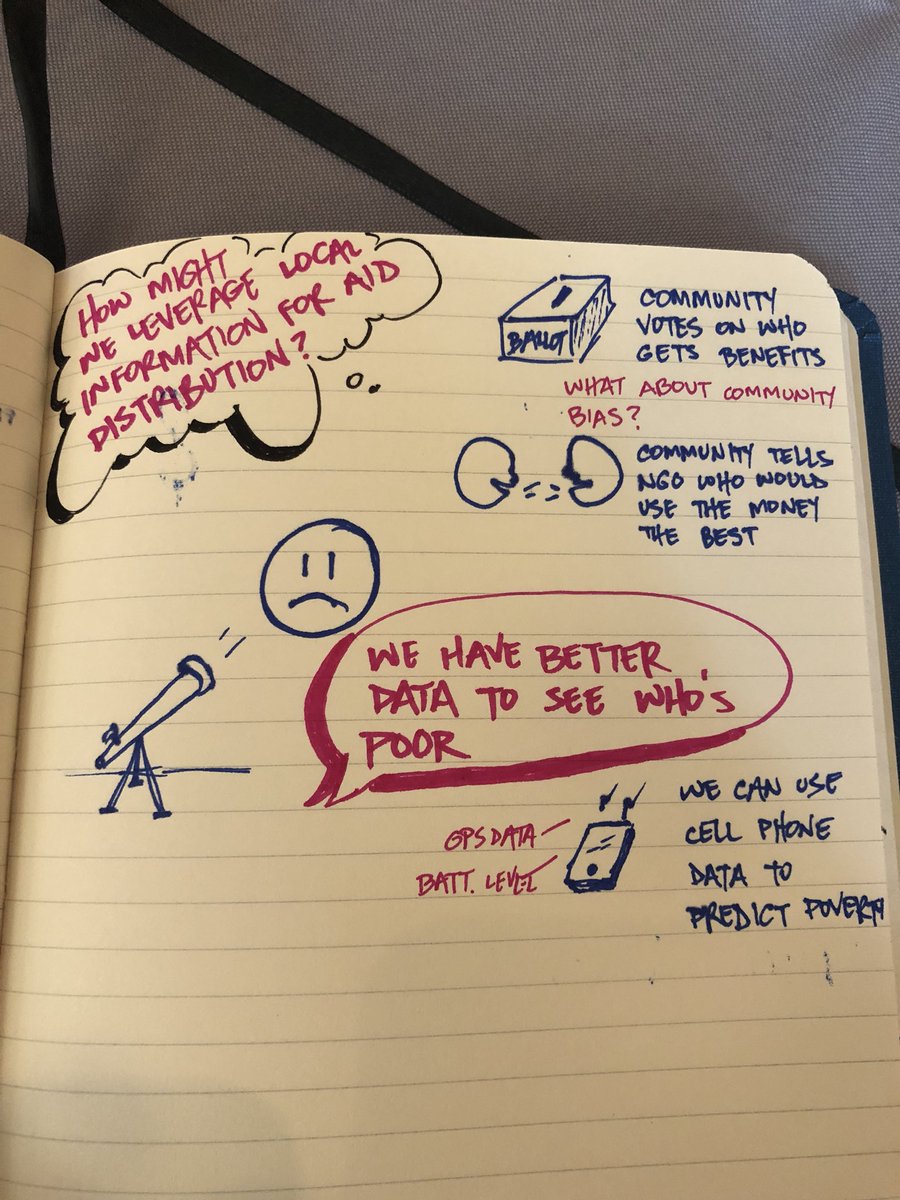 HOW MIGHT
WE LEVERAGE LOCAL
INFORMATION FOR AID
DISTRIBUTION?
BALLOT
COMMUNITY
VOTES ON WHO
GETS BENEFITS
WHAT ABOUT COMMUNITY
BIAS?
COMMUNITY TELLS
NGO WHO WOULD
USE THE MONEY
THE BEST
WE HAVE BETTER
DATA TO SEE WHO'S
POOR
GPS DATA
BATT. LEVEL
WE CAN USE
CELL PHONE
DATA TO
PREDICT POVERTY